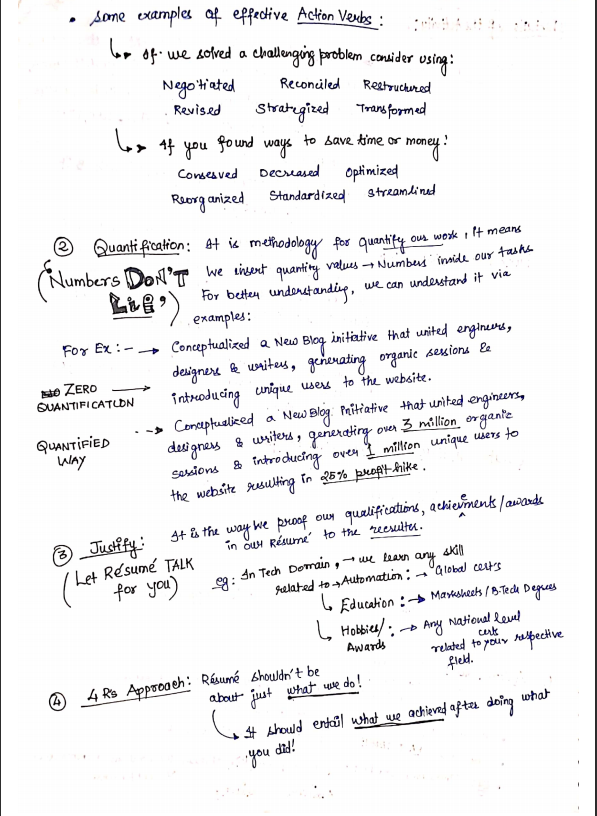 • Some examples of effective Action Verbs :
↳ If we solved a challenging problem consider using:
Negotiated Reconciled Restructured
Revised Strategized Transformed
↳ If you found ways to save time or money:
Conserved Decreased Optimized
Reorganized Standardized Streamlined
② Quantification: It is methodology for quantify our work, It means
we insert quantity values → Numbers inside our tasks
For better understanding, we can understand it via
examples:
("Numbers DON'T
LiE")
For Ex :- → Conceptualized a New Blog initiative that united engineers,
designers & writers, generating organic sessions &
introducing unique users to the website.
ZERO →
QUANTIFICATION
QUANTIFIED
WAY
--> Conceptualized a New Blog initiative that united engineers,
designers & writers, generating over 3 million organic
sessions & introducing over 1 million unique users to
the website resulting in 25% profit-hike.
③ Justify: It is the way we proof our qualifications, achievements/awards
in our Résumé to the recruiter.
(Let Résumé TALK
for you)
eg: In Tech Domain, → we learn any skill
related to → Automation: → Global certs
↳ Education: → Marksheets / B.Tech Degrees
↳ Hobbies/ : → Any National level
Awards certs
related to your respective
field.
④ 4 R's Approach: Résumé shouldn't be
about just what we do!
↳ It should entail what we achieved after doing what
you did!